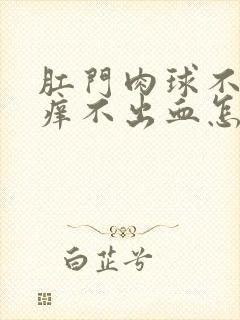 肛門肉球不
痒不出血怎
白芷兮